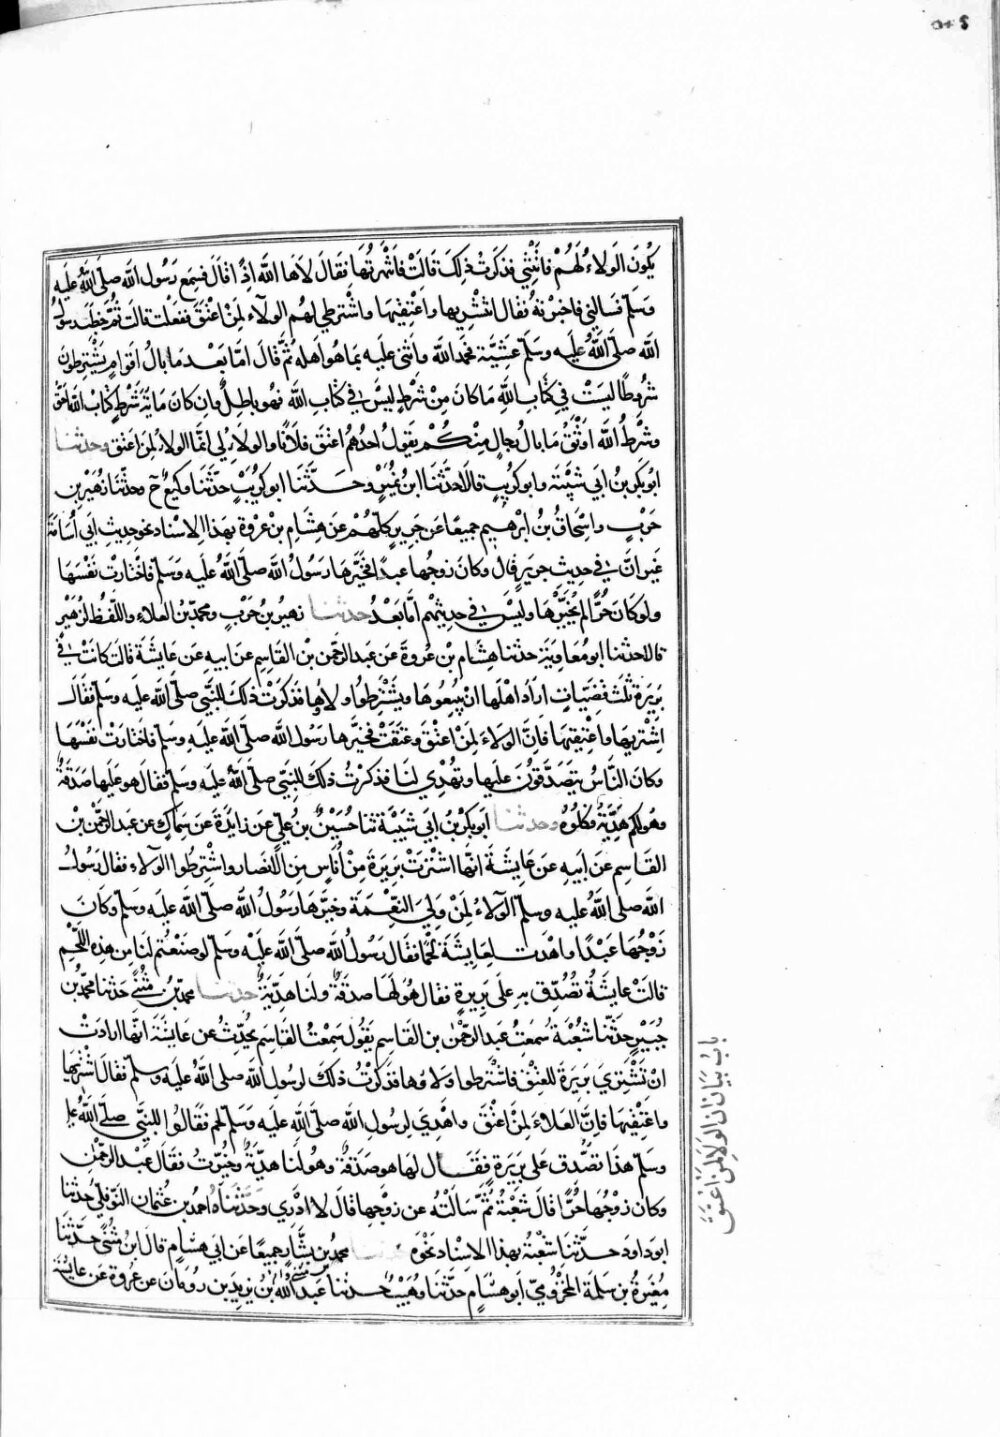 يكون الولاء لهم فاتتني فذكرت ذلك قالت فانتهرتها فقال لاها الله اذا قال فسمع رسول الله صلى الله عليه
وسلم فسالني فاخبرته فقال اشتريها واعتقيها واشترطي لهم الولاء لمن اعتق ففعلت قالت ثم خطب رسول
الله صلى الله عليه وسلم عشية فحمد الله واثنى عليه بما هو اهله ثم قال اما بعد ما بال اقوام يشترطون
شروطا ليست في كتاب الله ما كان من شرط ليس في كتاب الله فهو باطل وان كان ماية شرط كتاب الله احق
وشرط الله اوثق ما بال رجال منكم يقول احدهم اعتق فلانا والولاء لي انما الولاء لمن اعتق وحدثنا
ابو بكر بن ابي شيبة وابو كريب قالا حدثنا ابن نمير وحدثنا ابو كريب حدثنا وكيع ح وحدثنا زهير بن
حرب واسحاق بن ابرهيم جميعا عن جرير كلهم عن هشام بن عروة بهذا الاسناد نحو حديث ابي أسامة
غير ان في حديث جرير قال وكان زوجها عبدا فخيرها رسول الله صلى الله عليه وسلم فاختارت نفسها
ولو كان حرا لم يخيرها وليس في حديثهم اما بعد حدثنا زهير بن حرب ومحمد بن العلاء واللفظ لزهير
قالا حدثنا ابو معاوية حدثنا هشام بن عروة عن عبد الرحمن بن القاسم عن ابيه عن عايشة قالت كانت في
بريرة ثلث قضيات اراد اهلها ان يبيعوها ويشترطوا ولاؤها فذكرت ذلك للنبي صلى الله عليه وسلم فقال
اشتريها واعتقيها فان الولاء لمن اعتق وعتقت فخيرها رسول الله صلى الله عليه وسلم فاختارت نفسها
وكان الناس يتصدقون عليها وتهدي لنا فذكرت ذلك للنبي صلى الله عليه وسلم فقال هو عليها صدقة
وهو لكم هدية فكلوه وحدثنا ابو بكر بن ابي شيبة ثنا حسين بن علي عن زايدة عن سماك عن عبد الرحمن بن
القاسم عن ابيه عن عايشة انها اشترت بريرة من أناس من الانصار واشترطوا الولاء فقال رسول
الله صلى الله عليه وسلم الولاء لمن ولي النعمة وخيرها رسول الله صلى الله عليه وسلم وكان
زوجها عبدا واهدت لعايشة لحما فقال رسول الله صلى الله عليه وسلم لو صنعتم لنا من هذه اللحم
قالت عايشة تصدق به على بريرة فقال هو لها صدقة ولنا هدية حدثنا محمد بن مثنى حدثنا محمد بن
جبير حدثنا شعبة سمعت عبد الرحمن بن القاسم يقول سمعت القاسم يحدث عن عايشة انها ارادت
ان تشتري بريرة للعتق فاشترطوا ولاوها فذكرت ذلك لرسول الله صلى الله عليه وسلم فقال اشتريها
واعتقيها فان العلاء لمن اعتق واهدي لرسول الله صلى الله عليه وسلم لحم فقالوا للنبي صلى الله علي
وسلم هذا تصدق على بريرة فقال لها هو صدقة وهو لنا هدية وخيرت فقال عبد الرحمن
وكان زوجها حرا قال شعبة ثم سالته عن زوجها قال لا ادري وحدثناه احمد بن عثمان النوفلي حدثنا
ابو داود حدثنا شعبة بهذا الاسناد نحوه محمد بن بشار جميعا عن ابي هشام قال ابن مثنى حدثنا
مغيرة بن سلمة المخزومي ابو هشام حدثنا وهيب حدثنا عبد الله بن يزيد بن رومان عن عروة عن عايشة
باب بيان ان الولا لمن اعتق